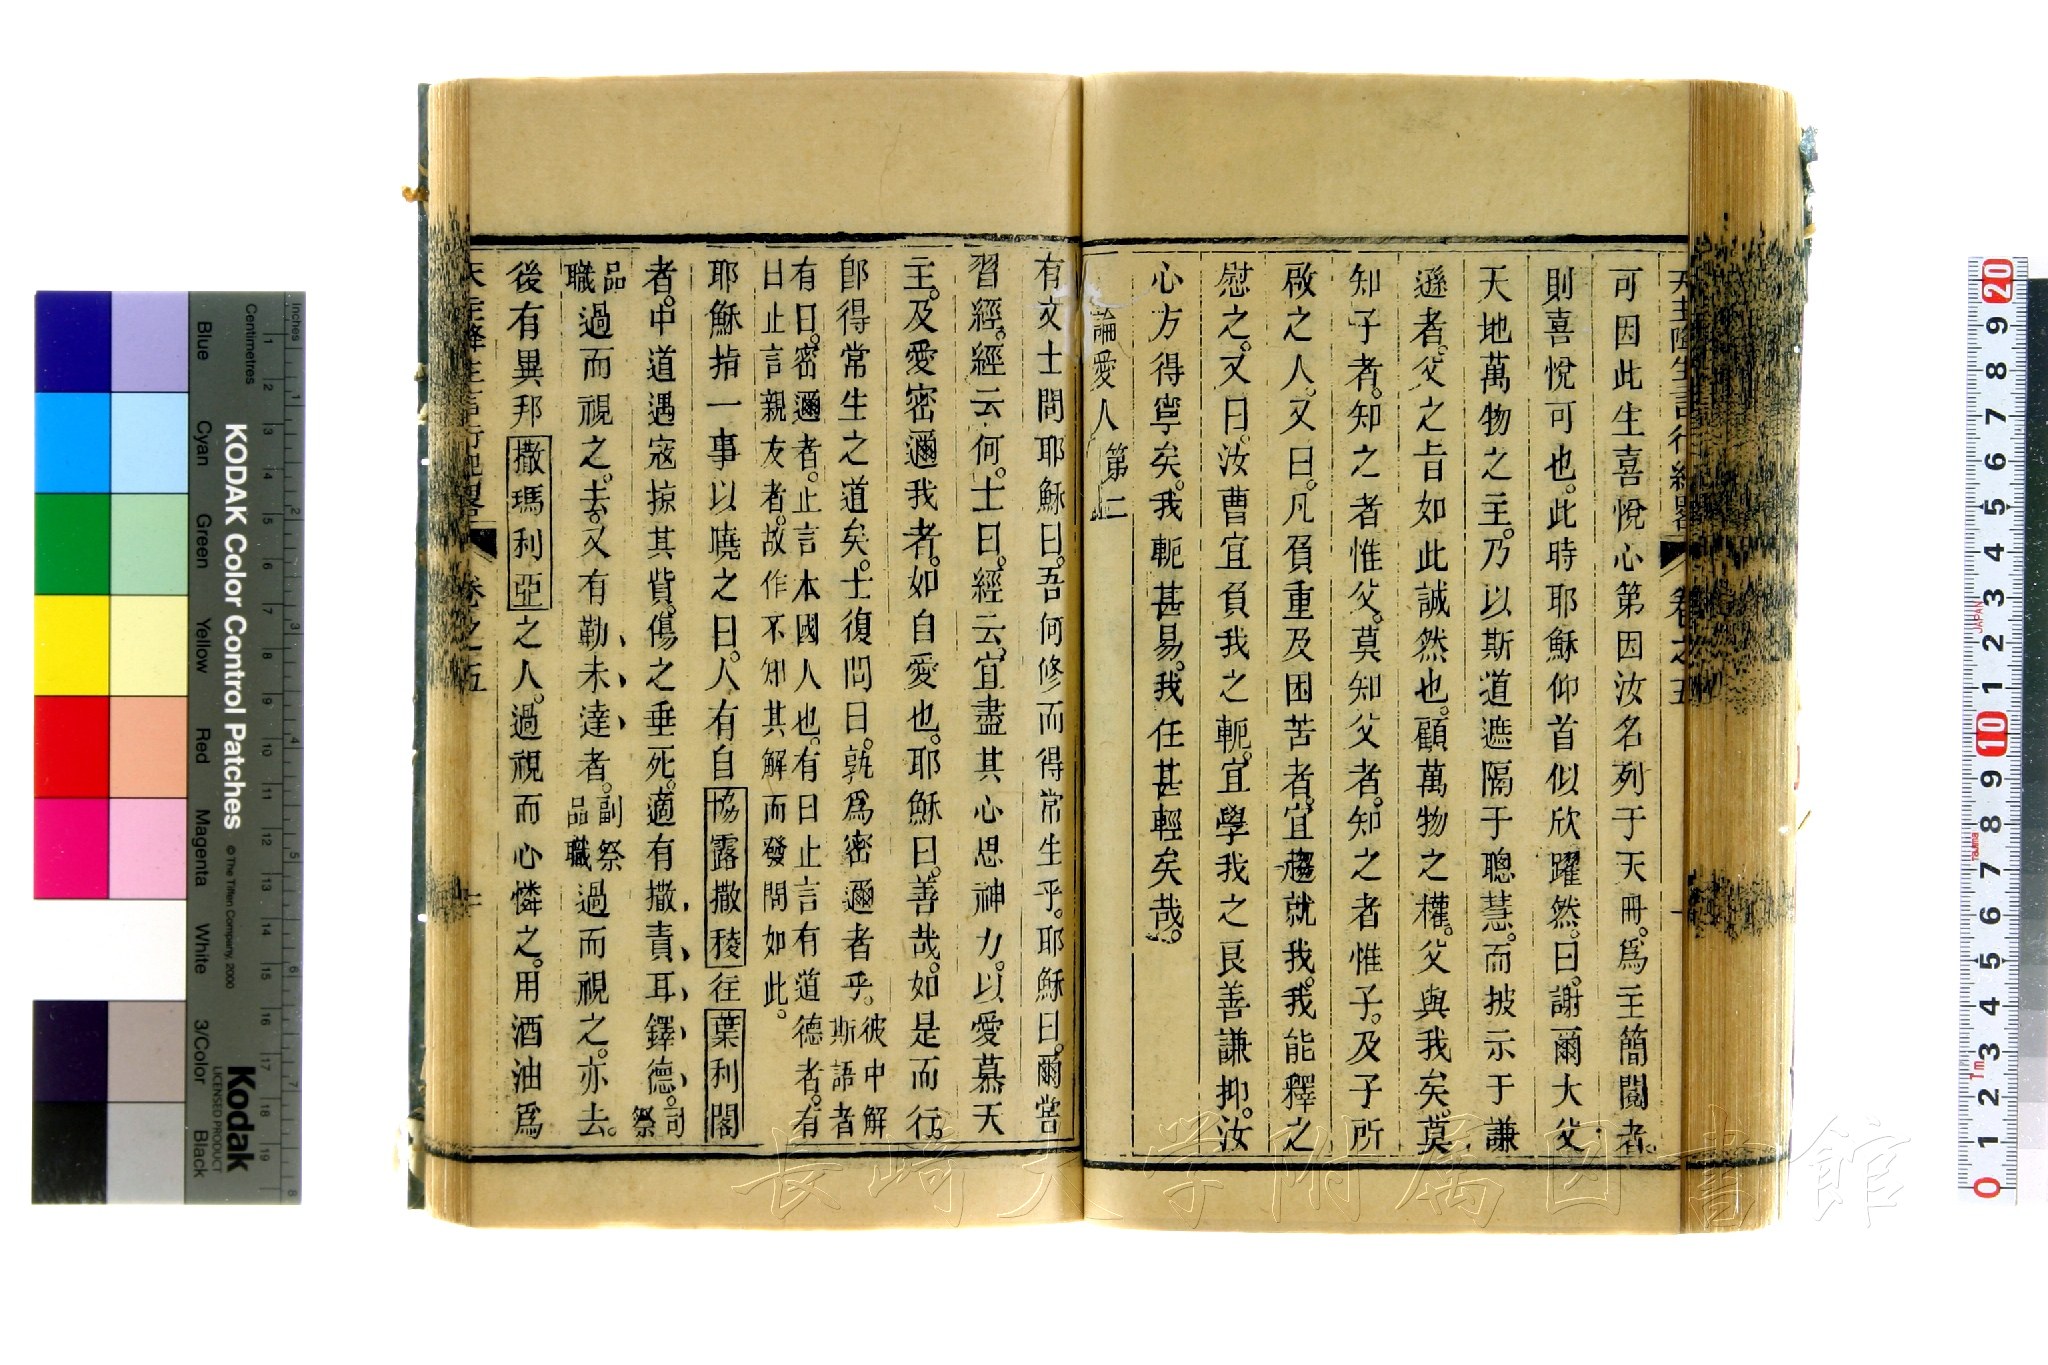 天主降生言行紀畧 卷之五
可因此生喜悅心第因汝名列于天冊。爲主簡閱者。
則喜悅可也。此時耶穌仰首似欣躍然。曰。謝爾大父
天地萬物之主。乃以斯道遮隔于聰慧。而披示于謙
遜者。父之旨如此誠然也。顧萬物之權。父與我矣。莫
知子者。知之者惟父。莫知父者。知之者惟子。及子所
啟之人。又曰。凡負重及困苦者。宜趨就我。我能釋之
慰之。又曰。汝曹宜負我之軛。宜學我之良善謙抑。汝
心方得寧矣。我軛甚易。我任甚輕矣哉。
論愛人 第二
有文士問耶穌曰。吾何修而得常生乎。耶穌曰。爾嘗
習經。經云何。士曰。經云。宜盡其心思神力。以愛慕天
主。及愛密邇我者。如自愛也。耶穌曰。善哉。如是而行。
卽得常生之道矣。士復問曰。孰爲密邇者乎。彼中解
斯語者
有曰。密邇者。止言本國人也。有曰止言有道德者。有
曰止言親友者。故作不知其解而發問如此。
耶穌指一事以曉之曰。人有自協露撒稜往葉利閣
者。中道遇寇掠其貲。傷之垂死。適有撒責耳鐸德。司
祭
品
職過而視之。去。又有勒未達者。副祭
品職過而視之。亦去。
後有異邦撒瑪利亞之人。過視而心憐之。用酒油爲
天主降生言行紀畧 卷之五
KODAK Color Control Patches
© The Tiffen Company, 2000
Kodak
LICENSED PRODUCT
inches
Centimetres
Blue
Cyan
Green
Yellow
Red
Magenta
White
3/Color
Black
JAPAN
長崎大学附属図書館